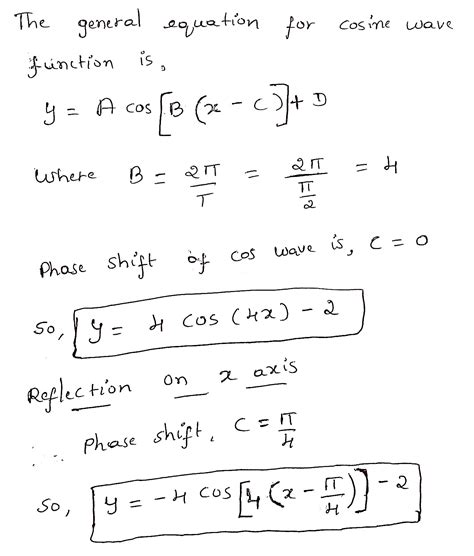 The general equation for cosine wave
function is,
y = A cos [B (x - C)] + D
Where B = 2π/T = 2π/(π/2) = 4
Phase shift of cos wave is, C = 0
So, y = 4 cos (4x) - 2
Reflection on x axis
∴ Phase shift, C = π/4
So, y = -4 cos [4 (x - π/4)] - 2